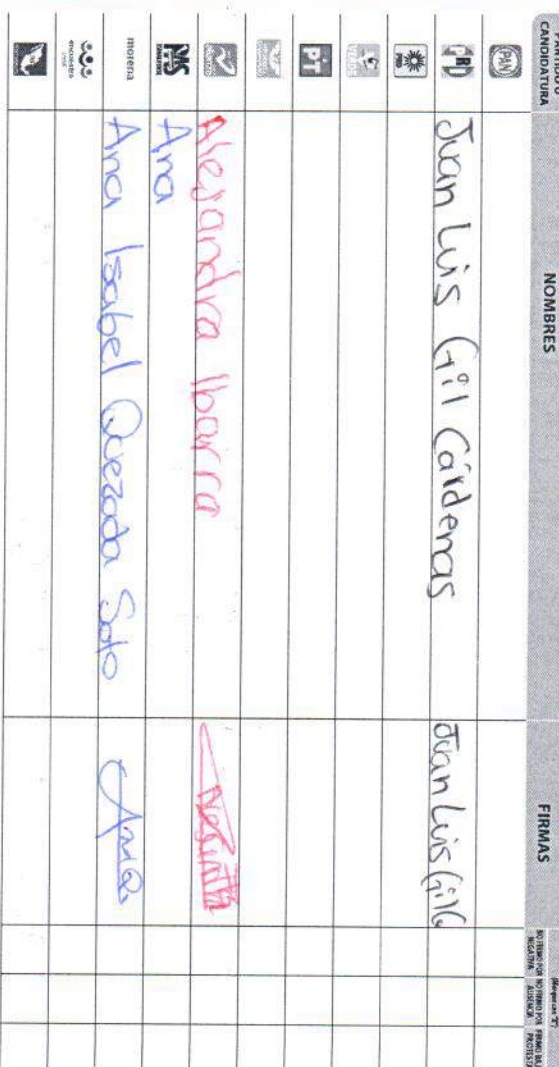 PARTIDO O CANDIDATURA
NOMBRES
FIRMAS
(Marque con "X")
NO FIRMÓ POR NEGATIVA
NO FIRMÓ POR AUSENCIA
FIRMÓ BAJO PROTESTA
PAN
PRI
Juan Luis Gil Cárdenas
Juan Luis Gil G
PRD
VERDE
PT
Alejandra Ibarra
Ana
morena
Ana Isabel Quezada Soto
encuentro
social